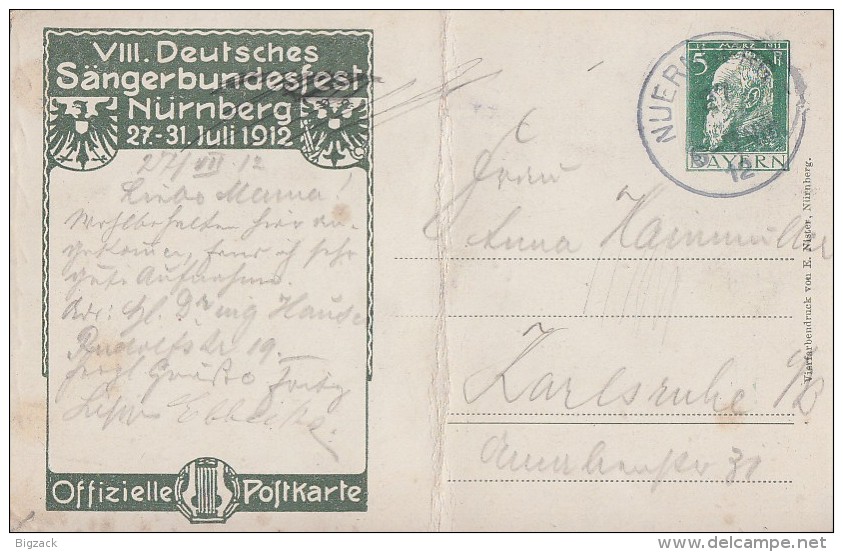 VIII. Deutsches
Sängerbundesfest
Nürnberg
27.-31. Juli 1912
27/VII 12
Liebe Mama!
Wohlbehalten hier an-
gekommen, fand ich sehr
gute Aufnahme.
Adr: Hl. Dr ing Hauser
Rudolfstr 19.
Herzl Grüße Fritz
Offizielle Postkarte
17 MÄRZ 1911
5 Pf
BAYERN
NUERN
12
Frau
Anna Hammüller
Karlsruhe i/B
31
Vielfarbendruck von E. Nister, Nürnberg.
Bigzack
delcampe.net